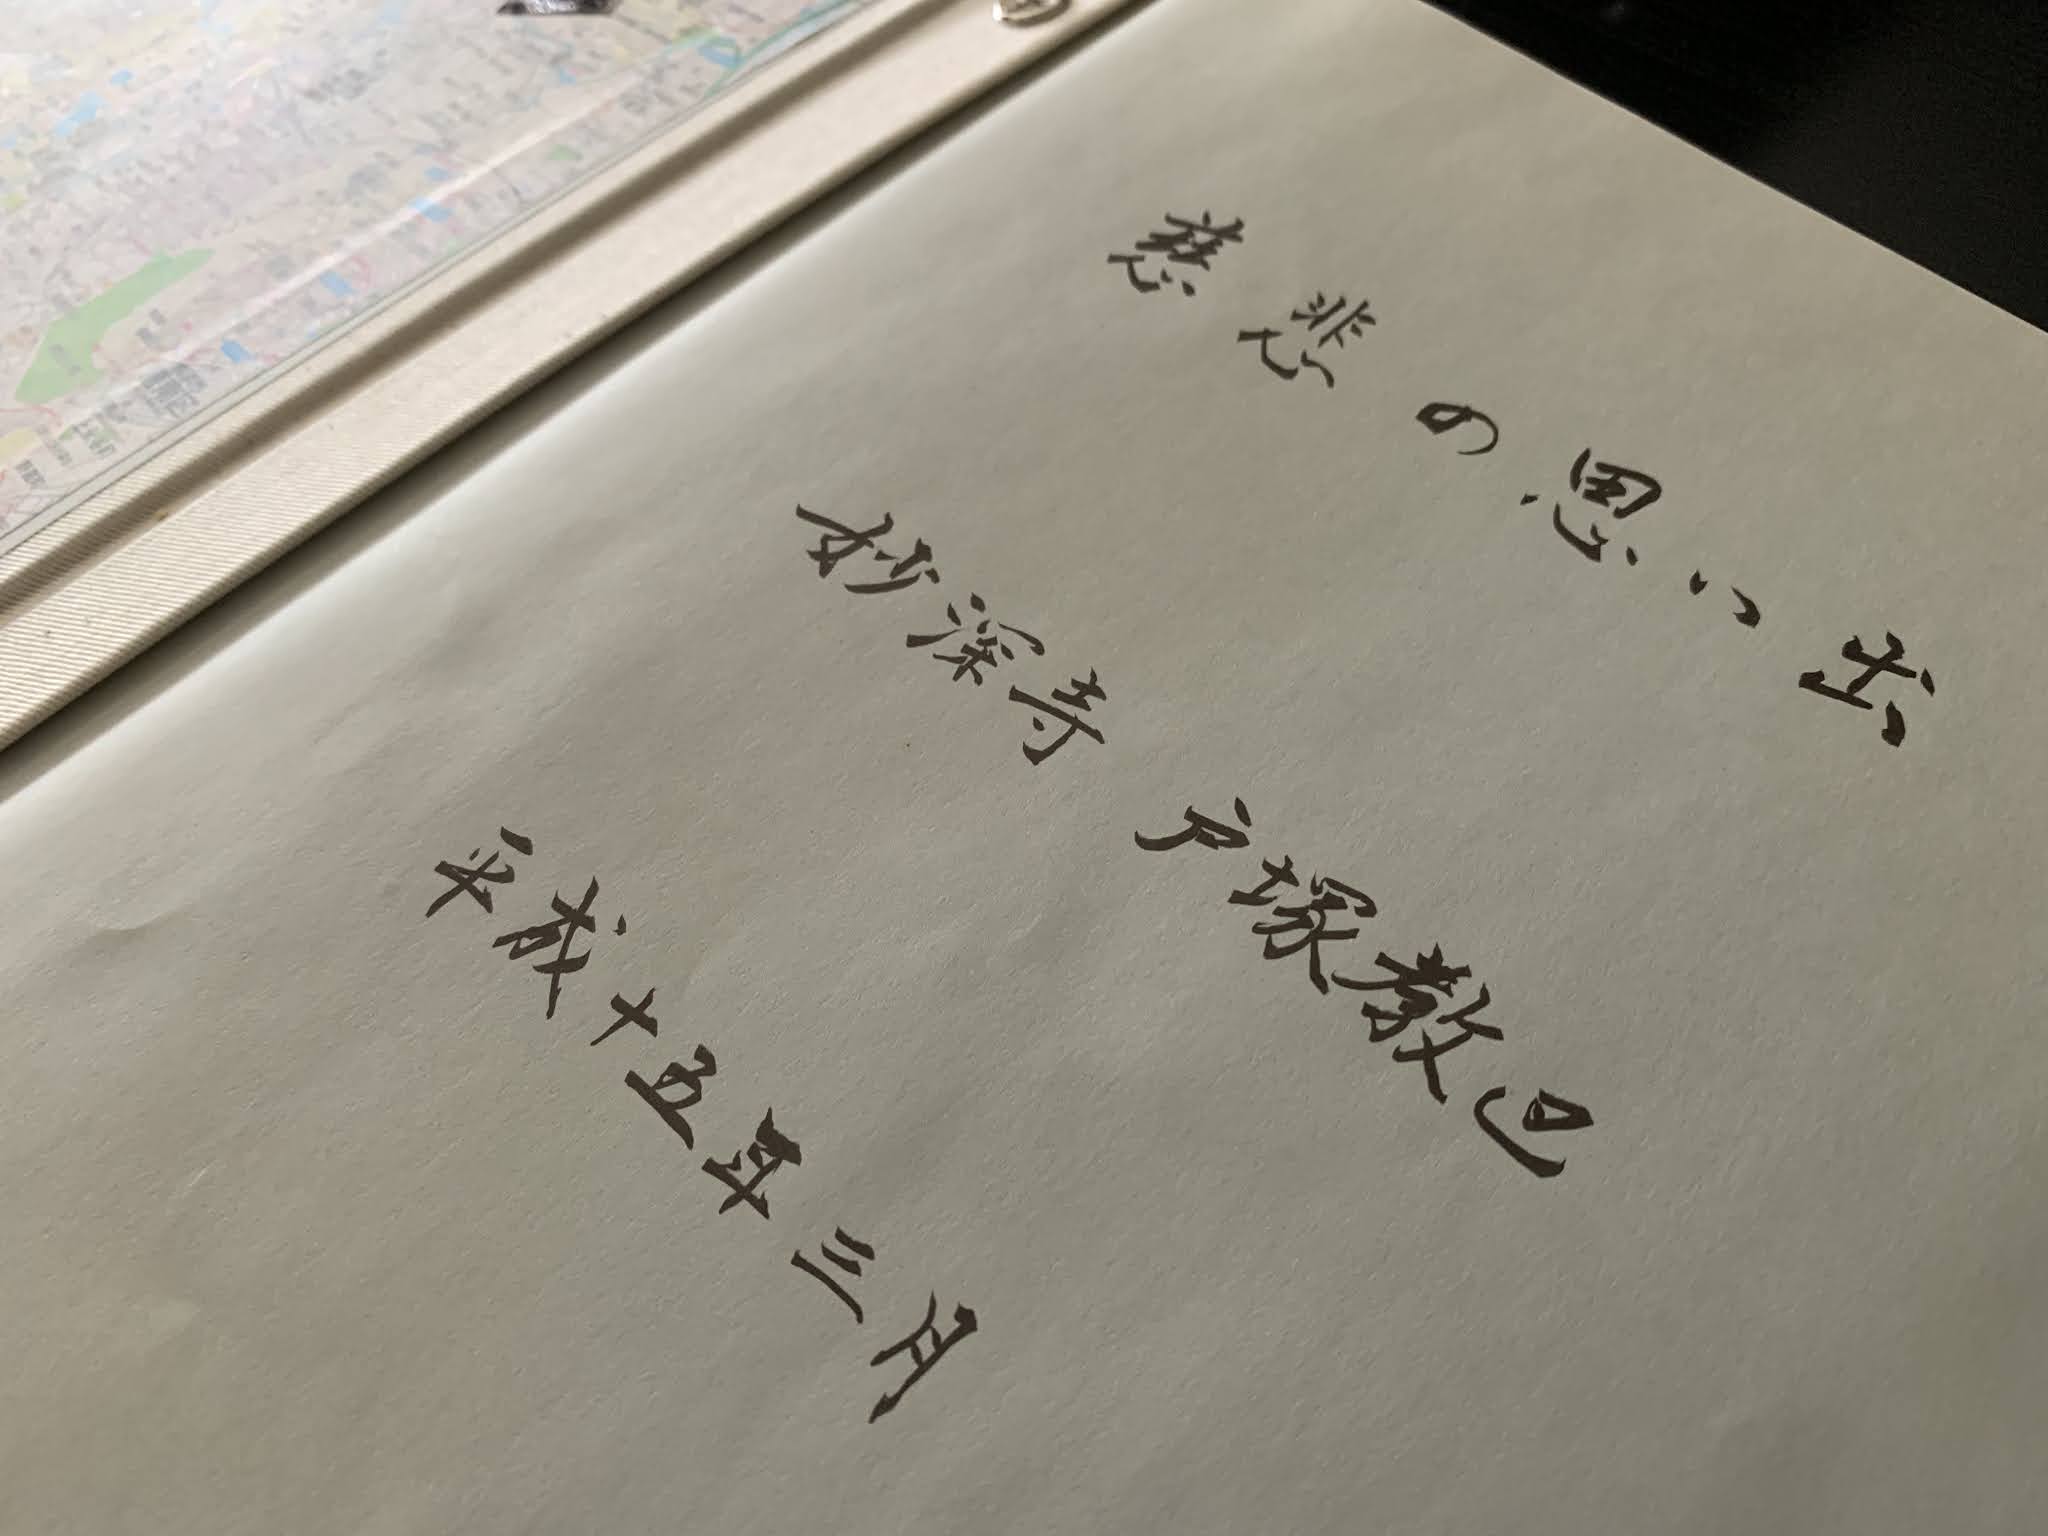 慈悲の思い出
妙深寺 戸塚教巴
平成十五年三月